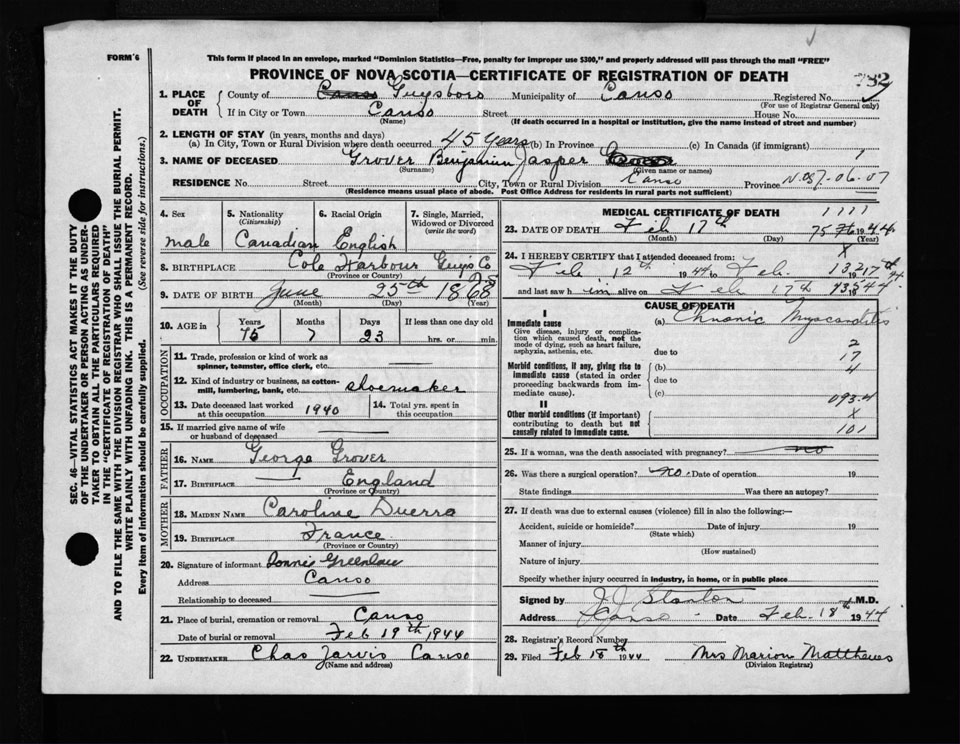 FORM 6
This form if placed in an envelope, marked "Dominion Statistics—Free, penalty for improper use $300," and properly addressed will pass through the mail "FREE"
PROVINCE OF NOVA SCOTIA—CERTIFICATE OF REGISTRATION OF DEATH
SEC. 46—VITAL STATISTICS ACT MAKES IT THE DUTY
OF THE UNDERTAKER OR PERSON ACTING AS UNDER-
TAKER TO OBTAIN ALL THE PARTICULARS REQUIRED
IN THE "CERTIFICATE OF REGISTRATION OF DEATH"
AND TO FILE THE SAME WITH THE DIVISION REGISTRAR WHO SHALL ISSUE THE BURIAL PERMIT.
WRITE PLAINLY WITH UNFADING INK. THIS IS A PERMANENT RECORD.
Every item of information should be carefully supplied. (See reverse side for instructions.)
1. PLACE OF DEATH County of Guysboro Municipality of Canso Registered No.
(For use of Registrar General only)
If in City or Town Canso Street House No.
(Name) (If death occurred in a hospital or institution, give the name instead of street and number)
2. LENGTH OF STAY (in years, months and days)
(a) In City, Town or Rural Division where death occurred 45 years (b) In Province (c) In Canada (if immigrant)
3. NAME OF DECEASED Grover Benjamin Jasper
(Surname) (Given name or names)
RESIDENCE No. Street City, Town or Rural Division Canso Province N.S.
(Residence means usual place of abode. Post Office Address for residents in rural parts not sufficient)
4. Sex male
5. Nationality (Citizenship) Canadian
6. Racial Origin English
7. Single, Married, Widowed or Divorced (write the word)
8. BIRTHPLACE Cole Harbour Guys Co
(Province or Country)
9. DATE OF BIRTH June 25th 1868
(Month) (Day) (Year)
10. AGE in Years 75 Months 7 Days 23 If less than one day old hrs. or min.
OCCUPATION
11. Trade, profession or kind of work as spinner, teamster, office clerk, etc.
12. Kind of industry or business, as cotton-mill, lumbering, bank, etc. shoemaker
13. Date deceased last worked at this occupation 1940
14. Total yrs. spent in this occupation
15. If married give name of wife or husband of deceased
FATHER
16. NAME George Grover
17. BIRTHPLACE England
(Province or Country)
MOTHER
18. MAIDEN NAME Caroline
19. BIRTHPLACE France
(Province or Country)
20. Signature of informant Greenlaw
Address Canso
Relationship to deceased
21. Place of burial, cremation or removal Canso
Date of burial or removal Feb 19th 1944
22. UNDERTAKER Chas Jarvis Canso
(Name and address)
MEDICAL CERTIFICATE OF DEATH
23. DATE OF DEATH Feb 17th 1944
(Month) (Day) (Year)
24. I HEREBY CERTIFY that I attended deceased from:
Feb 12th 1944 to Feb. 17th
and last saw him alive on Feb 17th 1944
CAUSE OF DEATH
I
Immediate cause (a) Chronic Myocarditis
Give disease, injury or complication which caused death, not the mode of dying, such as heart failure, asphyxia, asthenia, etc.
due to 2
17
Morbid conditions, if any, giving rise to immediate cause (stated in order proceeding backwards from immediate cause). (b) 4
due to
(c) 093.4
II
Other morbid conditions (if important) contributing to death but not causally related to immediate cause.
X
101
25. If a woman, was the death associated with pregnancy? no
26. Was there a surgical operation? no Date of operation 19
State findings Was there an autopsy?
27. If death was due to external causes (violence) fill in also the following:—
Accident, suicide or homicide? Date of injury 19
(State which)
Manner of injury
(How sustained)
Nature of injury
Specify whether injury occurred in industry, in home, or in public place
Signed by J.J. Stanton M.D.
Address Canso Date Feb. 18th 1944
28. Registrar's Record Number
29. Filed Feb 18th 1944 Mrs Marion Matthews
(Division Registrar)